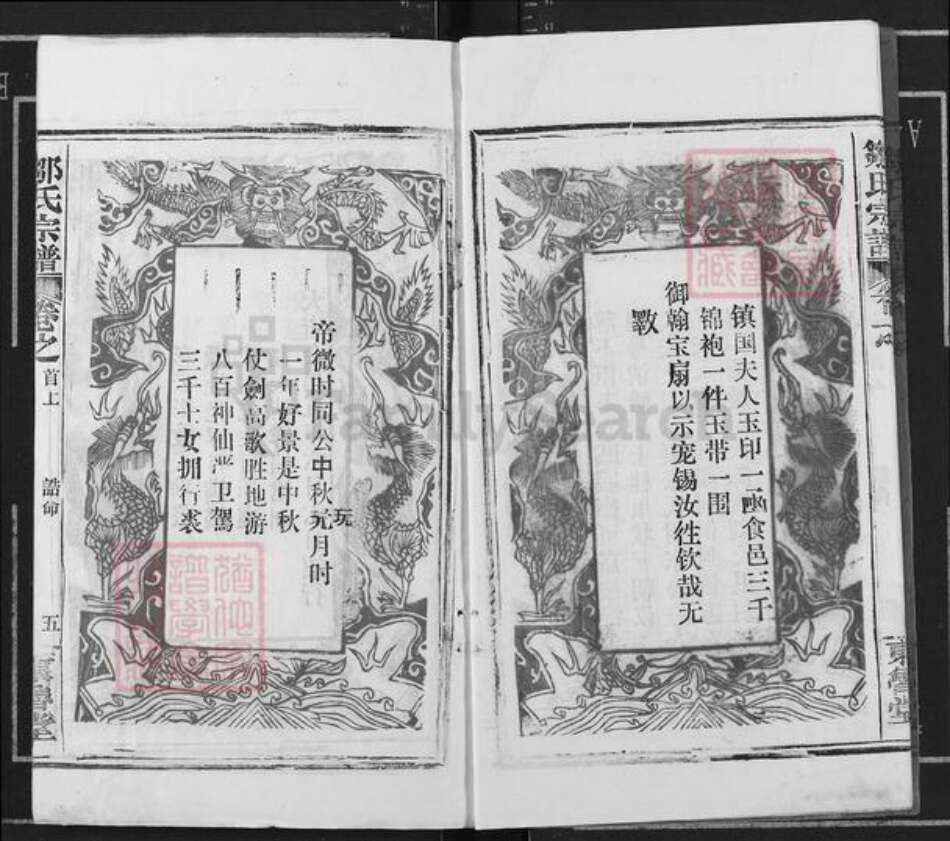 镇国夫人玉印一函食邑三千
锦袍一件玉带一围
御翰宝扇以示宠锡汝往钦哉无
斁
邹氏宗谱
卷之
首上
誥命
五
帝微时同公中秋元月时
玩
一年好景是中秋
仗劍高歌胜地游
八百神仙严卫驾
三千士女拥行裘